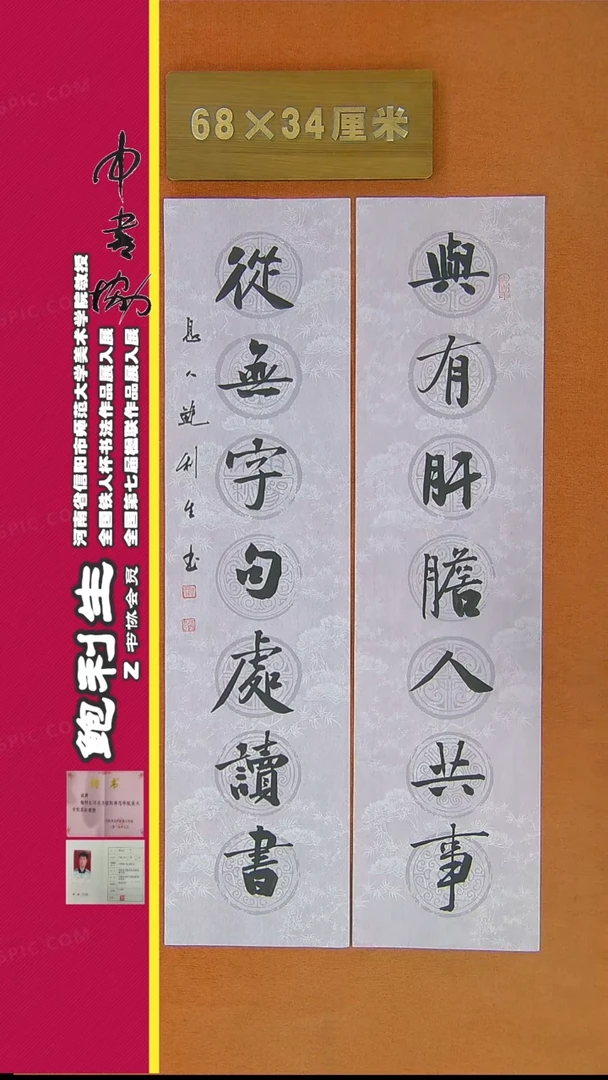 68×34厘米
與有肝膽人共事
從無字句處讀書
息人鲍利生书
中书协
河南省信阳市师范大学美术学院教授
全国铁人杯书法作品展入展
全国第七届楹联作品展入展
鲍利生
Z书协会员